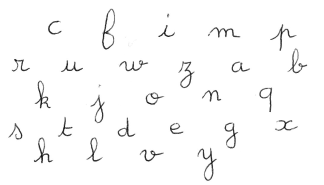 c f i m p
r u w z a b
k j o n q
s t d e g x
h l v y